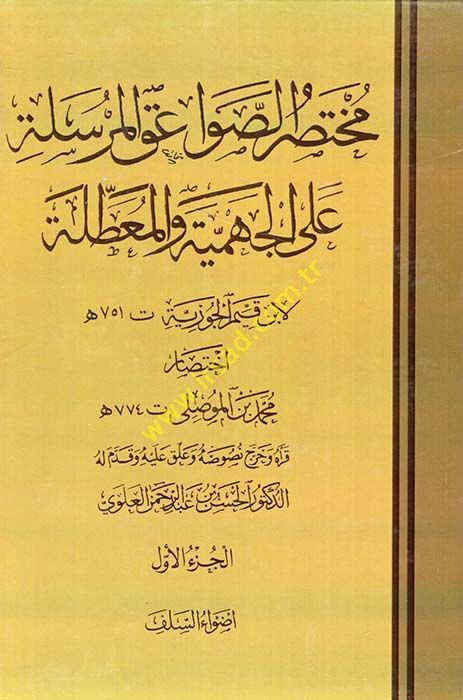 مختصر الصواعق المرسلة
على الجهمية والمعطلة
لابن قيم الجوزية ت ٧٥١ ھ
اختصار
محمد بن الموصلي ت ٧٧٤ ھ
قرأه وخرج نصوصه وعلق عليه وقدم له
الدكتور الحسن بن عبد الرحمن العلوي
الجزء الأول
اضواء السلف